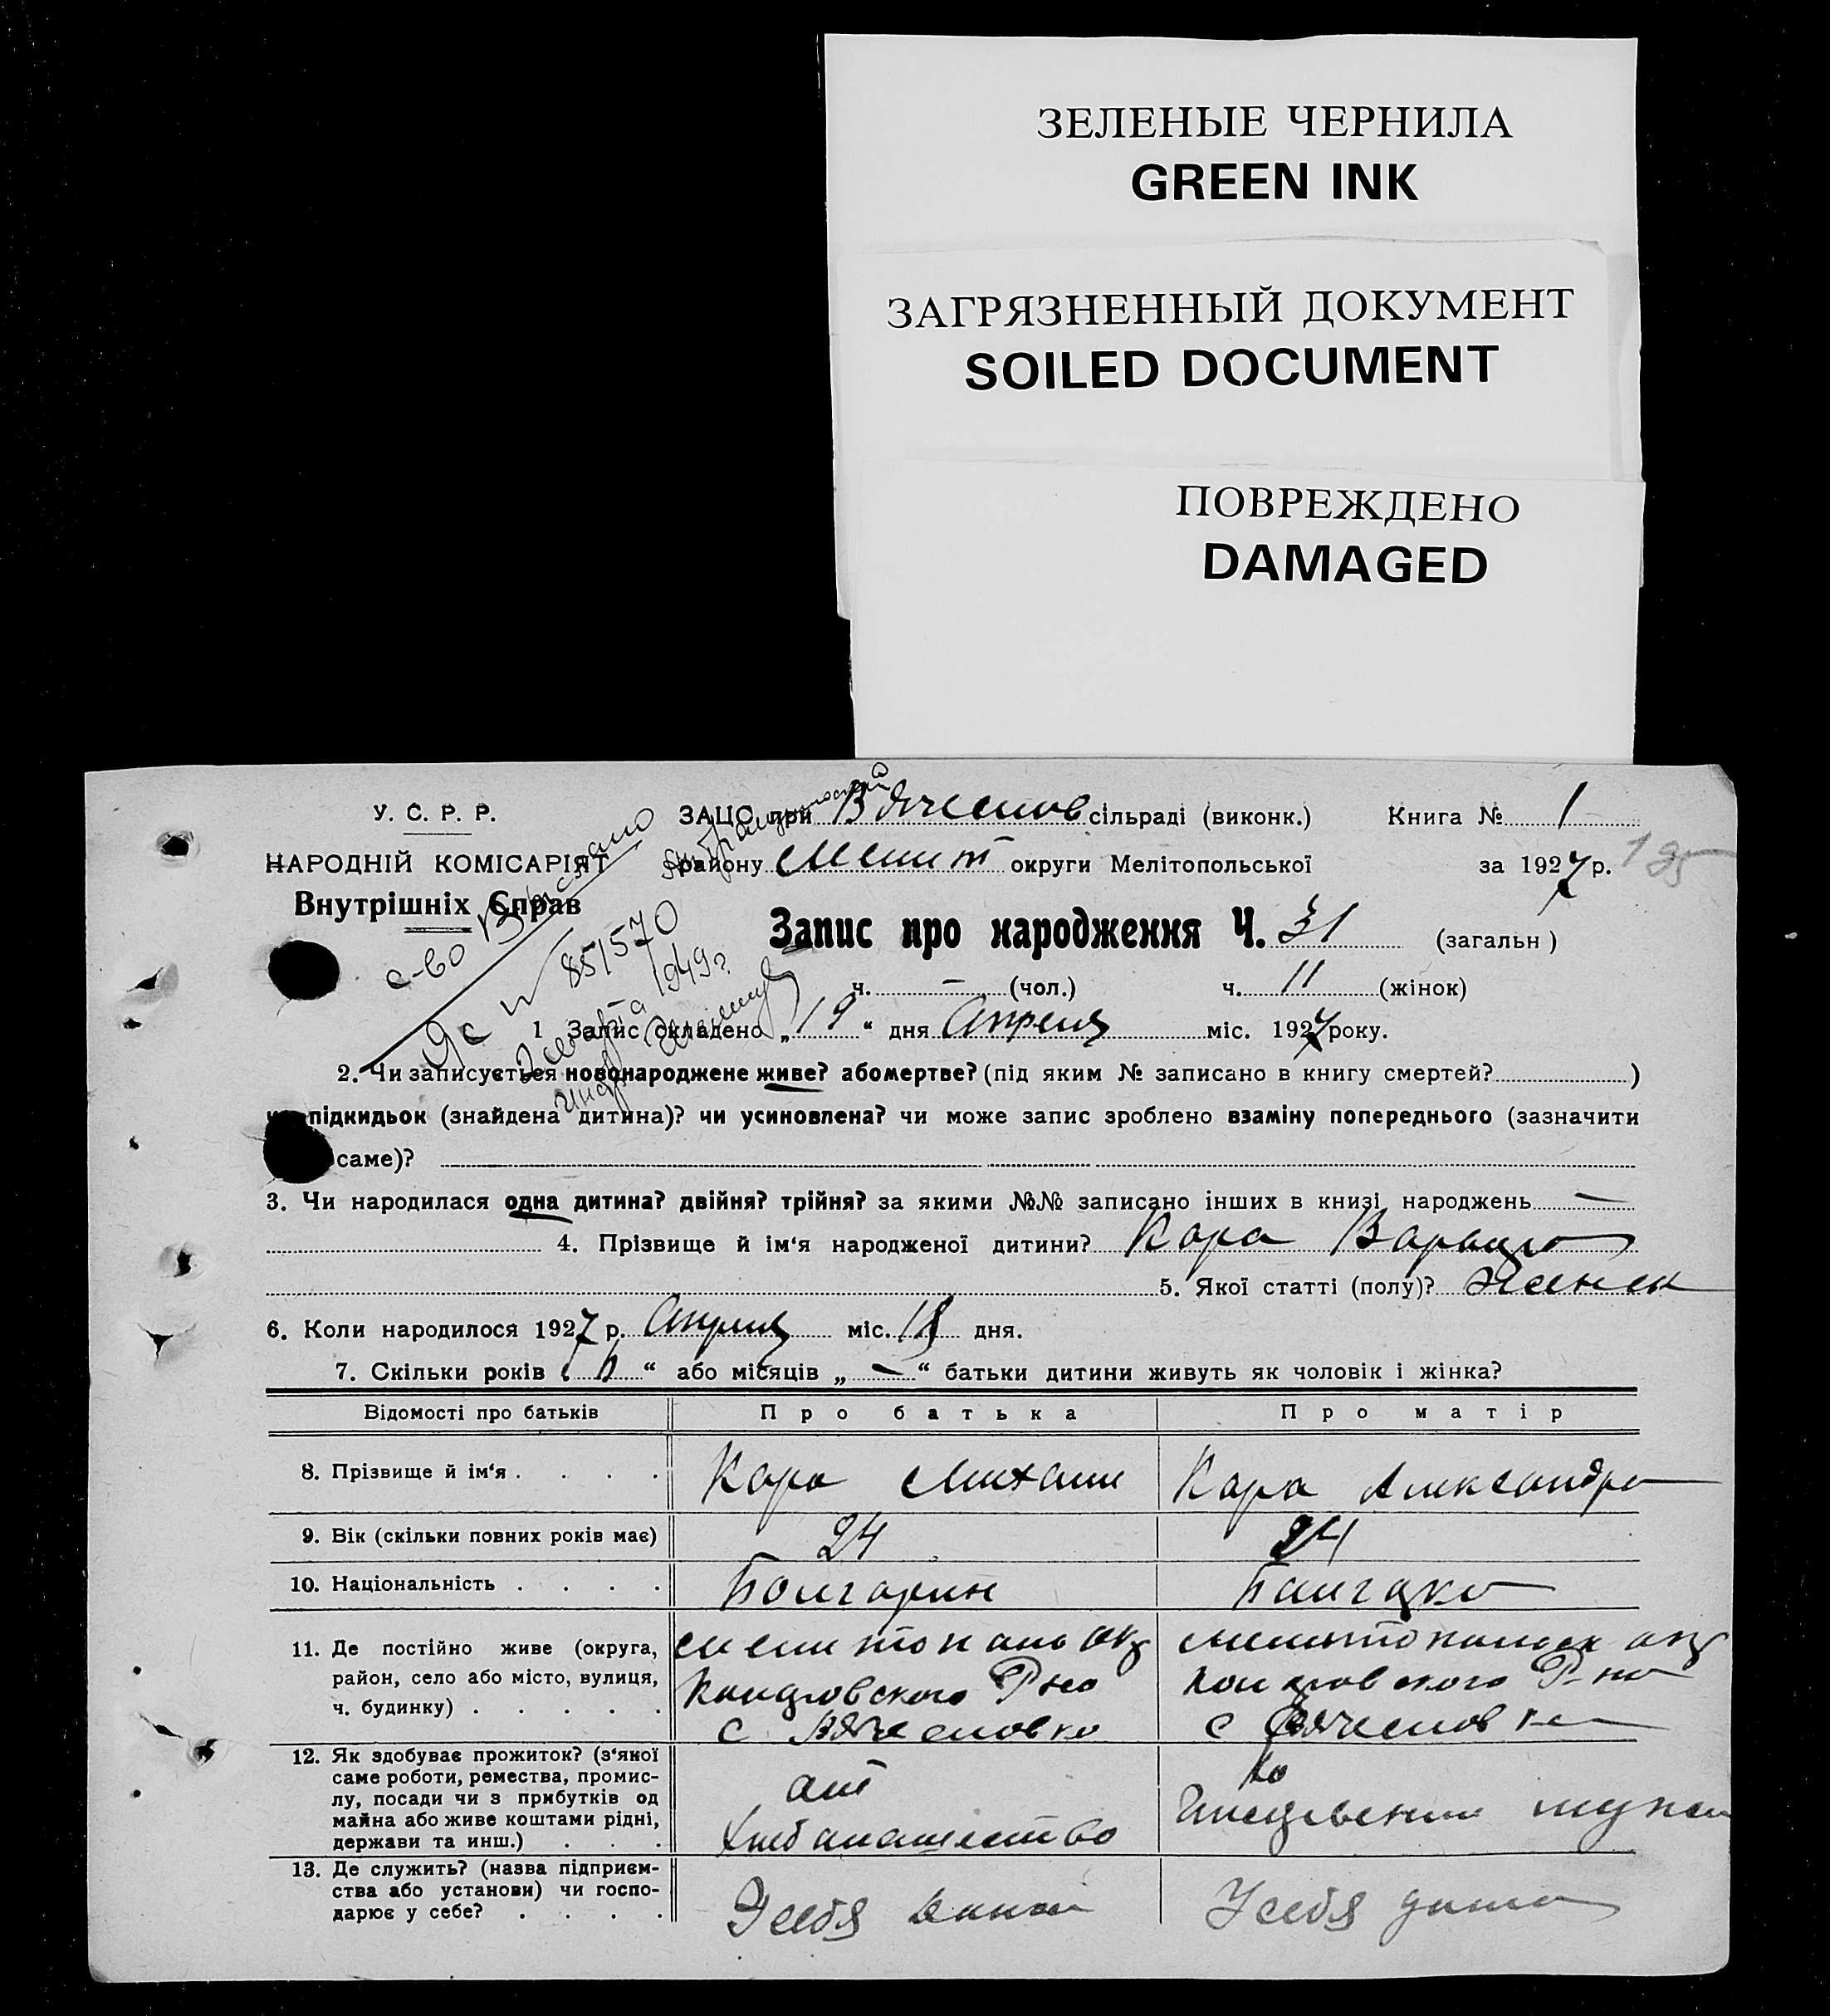 ЗЕЛЕНЫЕ ЧЕРНИЛА
GREEN INK
ЗАГРЯЗНЕННЫЙ ДОКУМЕНТ
SOILED DOCUMENT
ПОВРЕЖДЕНО
DAMAGED
У. С. Р. Р.
НАРОДНІЙ КОМІСАРІЯТ
Внутрішніх Справ
ЗАЦС при Вячеслов сільраді (виконк.) Книга № 1
району Мелит округи Мелітопольської за 1927 р. 195
с-во Выслано
ЯС № 851570
1949 г.
Запис про народження Ч. 31 (загальн)
ч. — (чол.) ч. 11 (жінок)
1 Запис складено „ 19 “ дня Апреля міс. 1927 року.
2. Чи записується новонароджене живе? або мертве? (під яким № записано в книгу смертей? )
підкидьок (знайдена дитина)? чи усиновлена? чи може запис зроблено взаміну попереднього (зазначити
саме)?
3. Чи народилася одна дитина? двійня? трійня? за якими №№ записано інших в книзі народжень —
4. Прізвище й ім'я народженої дитини? Кара Варвара
5. Якої статті (полу)? женск
6. Коли народилося 1927 р. Апреля міс. 18 дня.
7. Скільки років “ або місяців „ — “ батьки дитини живуть як чоловік і жінка?
Відомості про батьків Про батька Про матір
8. Прізвище й ім'я . . . . Кара Михаил Кара Александра
9. Вік (скільки повних років має) 24 24
10. Національність . . . . Болгарин Болгарка
11. Де постійно живе (округа,
район, село або місто, вулиця,
ч. будинку) . . . . .
Мелитополь окр
Коларовского Р-на
с Вячесловка
Мелитопольск окр
Коларовского Р-на
с Вячесловка
12. Як здобуває прожиток? (з'якої
саме роботи, ремества, промис-
лу, посади чи з прибутків од
майна або живе коштами рідні,
держави та инш.) . . .
от
хлебопашество
на
Иждивении мужа
13. Де служить? (назва підприєм-
ства або установи) чи госпо-
дарює у себе? . . . .
У себя дома
У себя дома